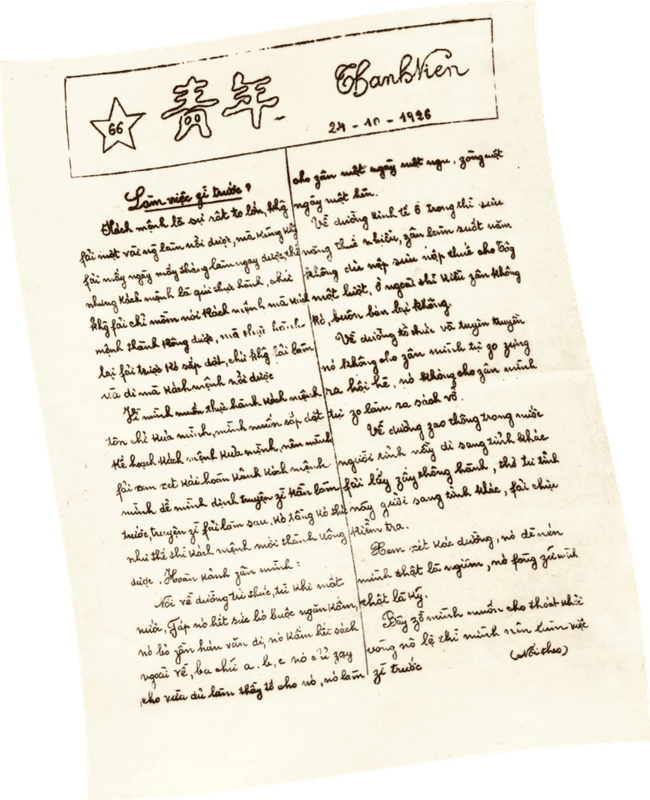 66
青年
Thanh Niên
24-10-1926
Làm việc zì trước?
Kách mệnh là sự rất to lớn, khg
fải một vài ng làm nổi được, mà kũng khg
fải mấy ngày mấy tháng làm ngay được, thế
nhưng kách mệnh là quí thực hành, chứ
khg fải chỉ mồm nói kách mệnh mà kách
mệnh thành kông được, mà thực hành
lại fải trước kó sắp đặt, chứ khg fải làm
mà kách mệnh nổi được
Vì mình muốn thực hành kách mệnh
tôn chỉ kủa mình, mình muốn sắp đặt
kế hoạch kách mệnh kủa mình, nên mình
fải xem xét kái hoàn kảnh kách mệnh
mình để mình định truyện zì kần làm
trước, truyện zì fải làm sau, kó tầng kó thứ
như thế thì kách mệnh mới thành kông
được. Hoàn kảnh zân mình:
Nói về đường tri thức, từ khi mất
nước, Fáp nó hết sức bó buộc ngăn kấm,
nó bỏ zần hán văn đi, nó kấm hết sách
ngoài về, ba chữ a, b, c nó chỉ zạy
cho vừa đủ làm thầy tớ cho nó, nó làm
cho zân một ngày một ngu, zống một
ngày một hèn.
Về đường kinh tế ở trong thì sưu
nặng thuế nhiều, zân làm suốt năm
không đủ nộp sưu nộp thuế cho Tây
một lượt, ở ngoài thì kiều zân không
kó, buôn bán lại không.
Về đường tổ chức và tuyên truyền
nó không cho zân mình tự zo zựng
ra hội hè, nó không cho zân mình
tự zo làm ra sách vở.
Về đường zao thông trong nước
người tỉnh nầy đi sang tỉnh khác
fải lấy zấy thông hành, thư từ tỉnh
nầy gưởi sang tỉnh khác, fải chịu
kiểm tra.
Xem xét kác đường, nó đè nén
mình thật là ngiêm, nó fòng zữ mình
thật là kỹ.
Bây zờ mình muốn cho thoát khỏi
vòng nô lệ thì mình nên làm việc
zì trước
(Nối theo)